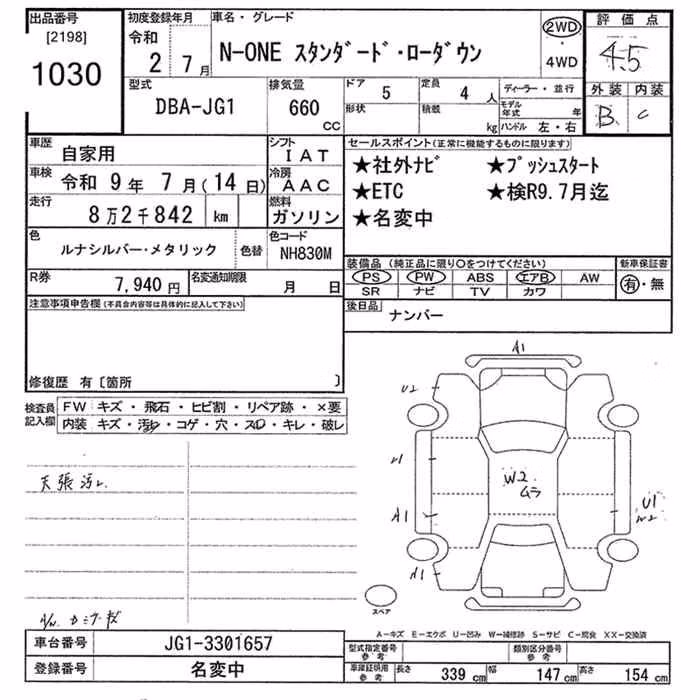 出品番号
[2198]
1030
初度登録年月
令和
2 7月
車名・グレード
N-ONE スタンダード・ローダウン
2WD
4WD
評価点
4.5
外装 内装
B C
型式
DBA-JG1
排気量
660 CC
ドア 5
形状
定員 4 人
積載 kg
ディーラー・並行
モデル年式 年
ハンドル 左・右
車歴 自家用
シフト IAT
車検 令和 9年 7月(14日)
冷房 AAC
走行 8万2千842 km
燃料 ガソリン
色 ルナシルバー・メタリック 色替
色コード NH830M
R券 7,940円
名変通知期限 月 日
セールスポイント(正常に機能するものに限ります)
★社外ナビ ★プッシュスタート
★ETC ★検R9.7月迄
★名変中
装備品 (純正品に限り○をつけてください)
PS PW ABS エアB AW
SR ナビ TV カワ
新車保証書
有・無
後日品 ナンバー
注意事項申告欄(不具合内容等は具体的に記入して下さい)
修復歴 有〔箇所 〕
検査員記入欄
FW キズ・飛石・ヒビ割・リペア跡・×要
内装 キズ・汚れ・コゲ・穴・スレ・キレ・破レ
天張汚レ
A1
U2
U1
A1
A1
W2
ムラ
U1
W2
スペア
A-キズ E-エクボ U-凹み W-補修跡 S-サビ C-腐食 XX-交換済
車台番号 JG1-3301657
登録番号 名変中
型式指定番号 参考
類別区分番号 参考
車庫証明用 参考
長さ 339 cm 幅 147 cm 高さ 154 cm